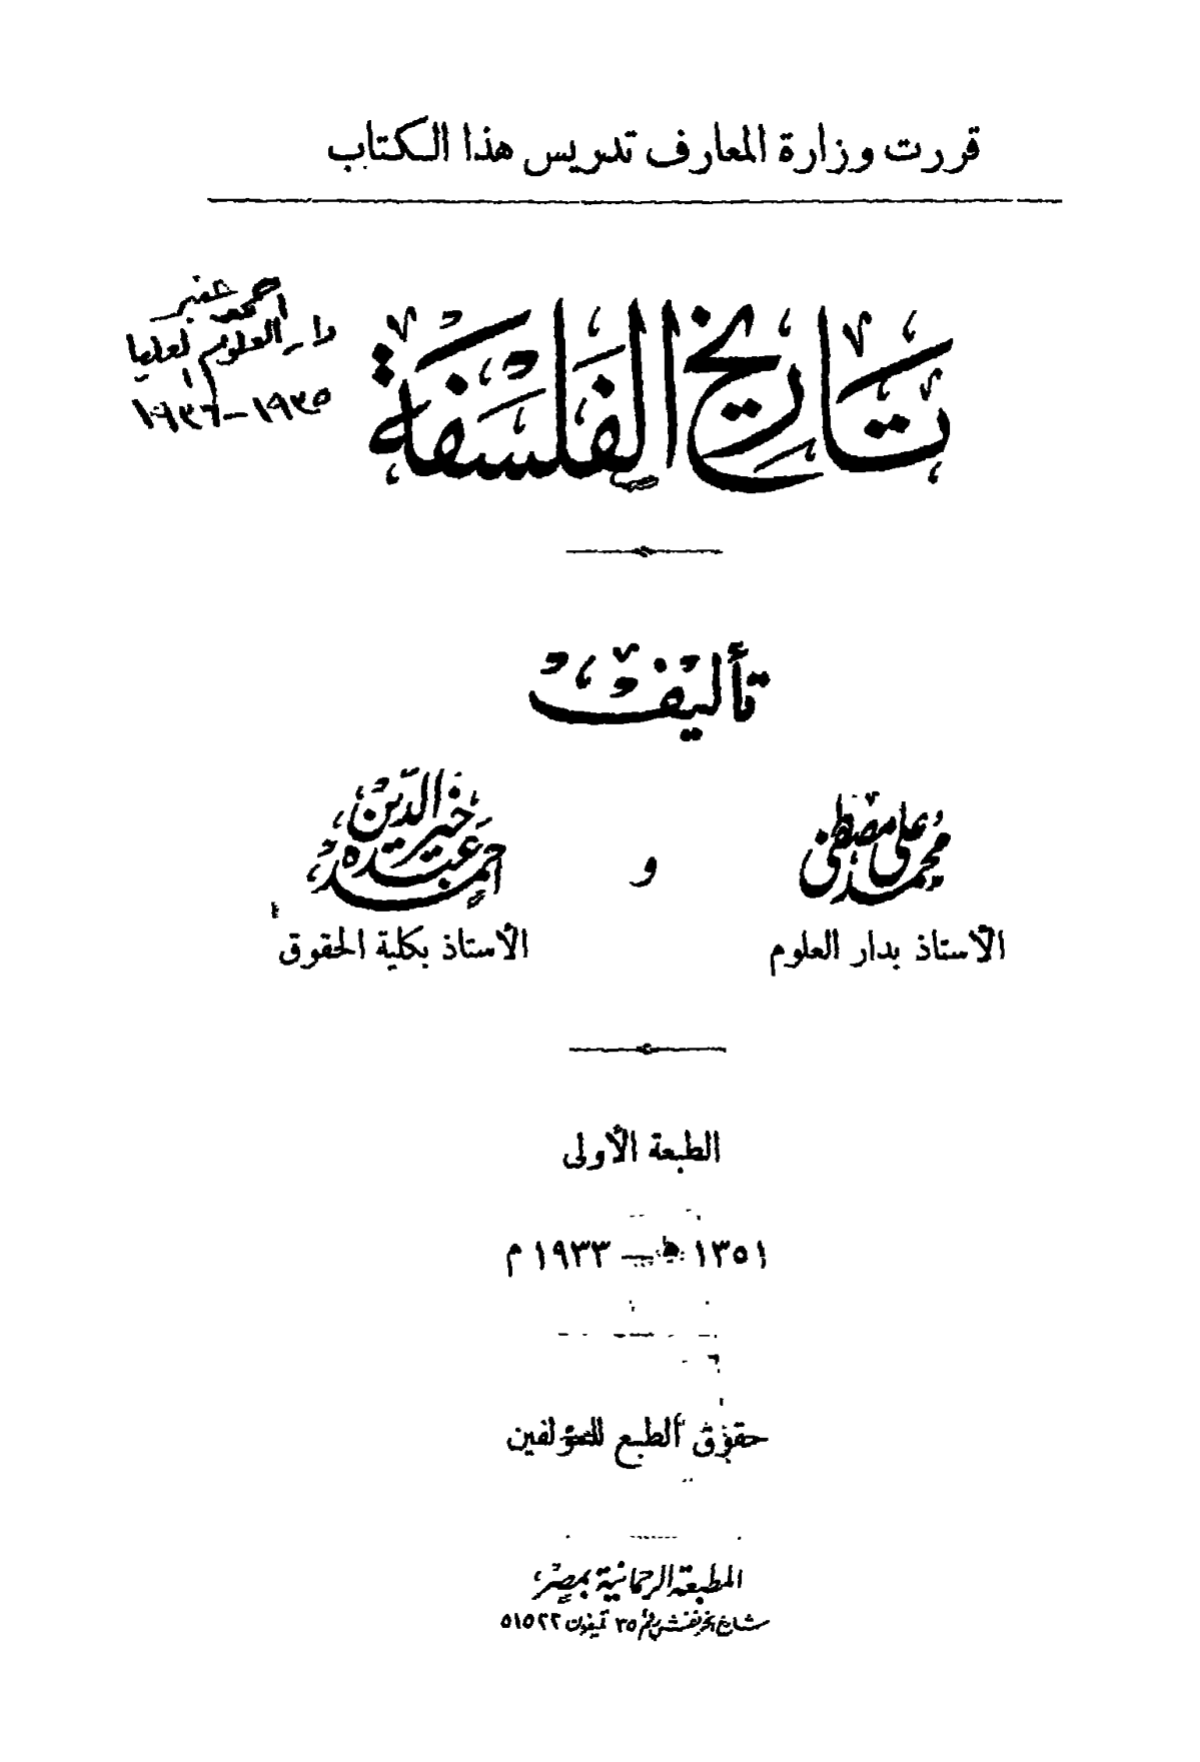 قررت وزارة المعارف تدريس هذا الكتاب
احمد عنبر
دار العلوم العليا
١٩٣٥ – ١٩٣٦
تاريخ الفلسفة
تأليف
محمد علي مصطفى و أحمد عبده خير الدين
الأستاذ بدار العلوم الأستاذ بكلية الحقوق
الطبعة الأولى
١٣٥١ هـ — ١٩٣٣ م
حقوق الطبع للمؤلفين
المطبعة الرحمانية بمصر
شارع الخرنفش رقم ٣٥ تليفون ٥١٥٢٢